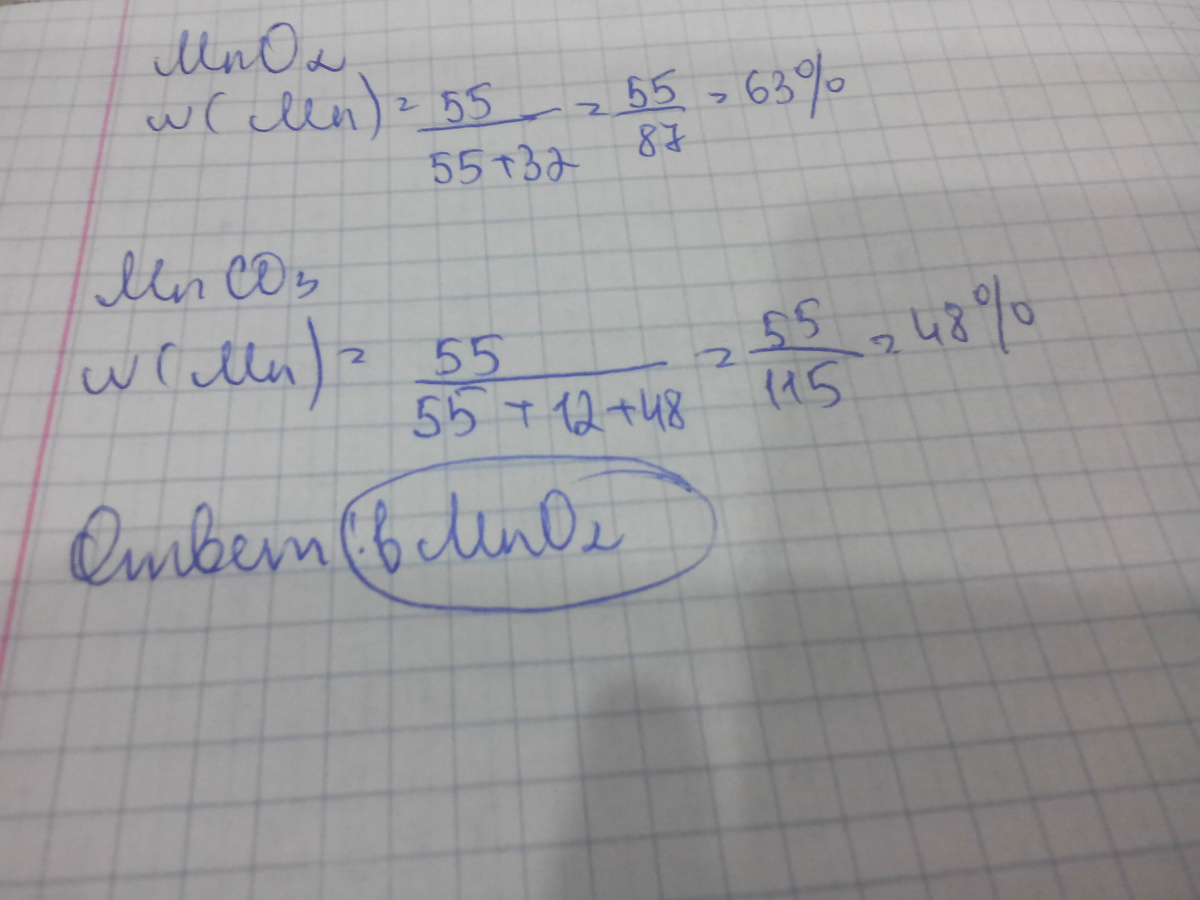 MnO₂
w(Mn) = 55/(55+32) = 55/87 = 63%
MnCO₃
w(Mn) = 55/(55+12+48) = 55/115 = 48%
Ответ: в MnO₂